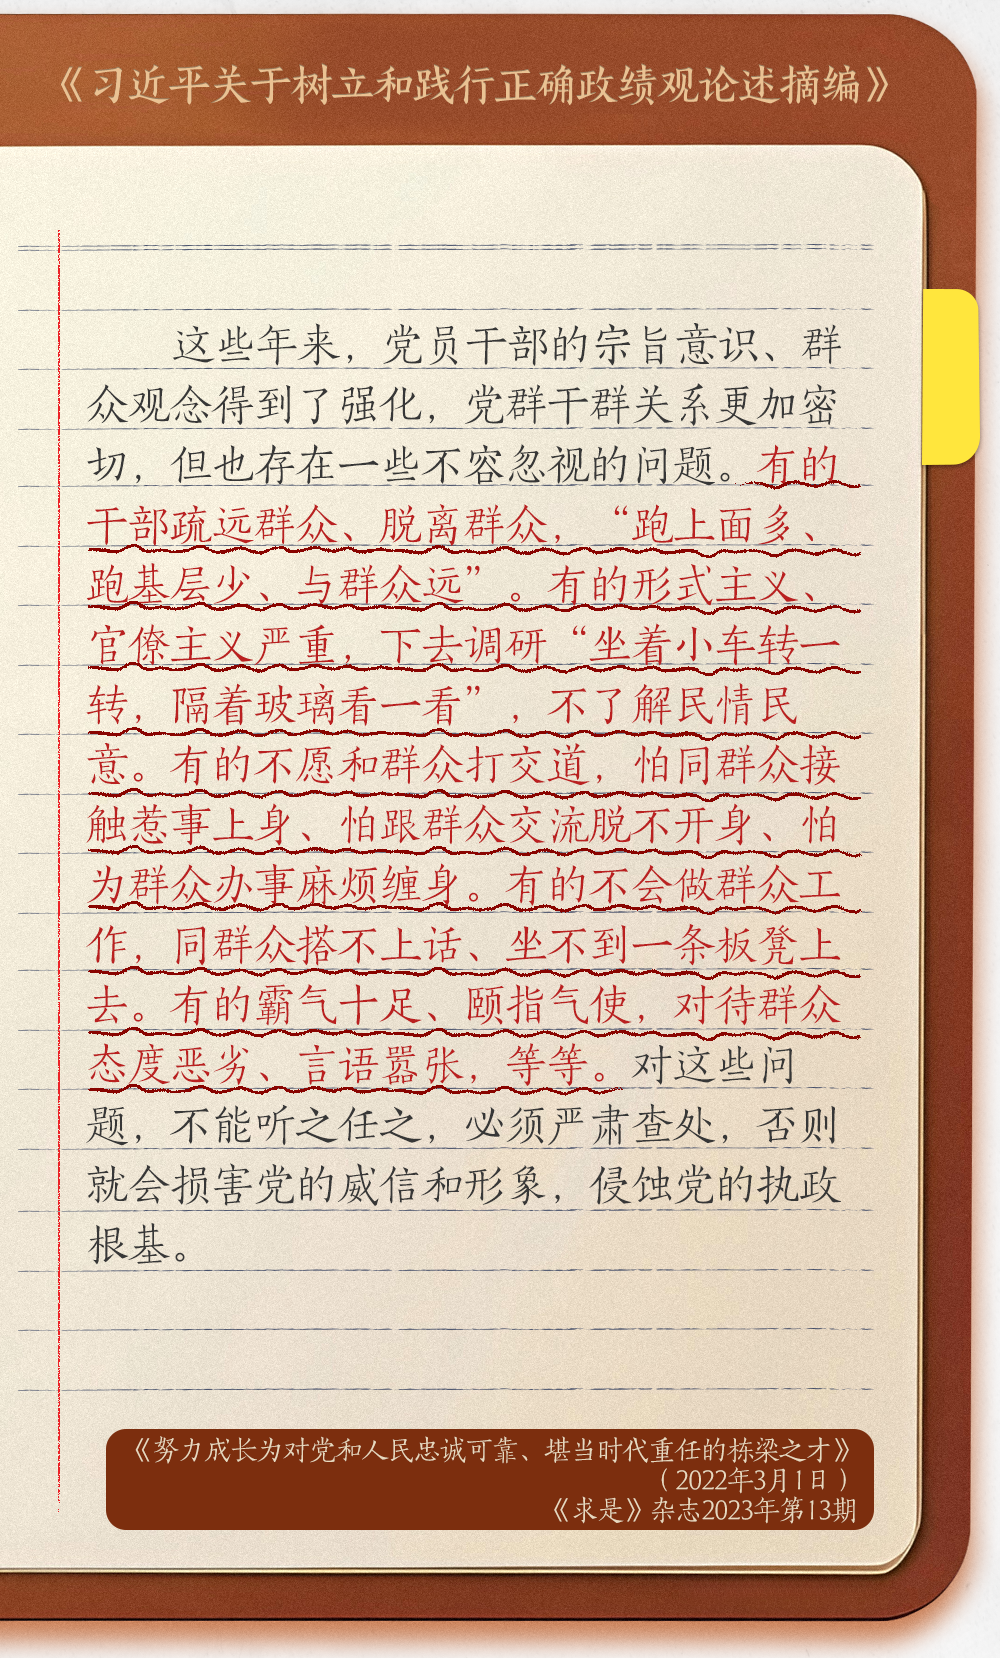 《习近平关于树立和践行正确政绩观论述摘编》
这些年来，党员干部的宗旨意识、群
众观念得到了强化，党群干群关系更加密
切，但也存在一些不容忽视的问题。有的
干部疏远群众、脱离群众，“跑上面多、
跑基层少、与群众远”。有的形式主义、
官僚主义严重，下去调研“坐着小车转一
转，隔着玻璃看一看”，不了解民情民
意。有的不愿和群众打交道，怕同群众接
触惹事上身、怕跟群众交流脱不开身、怕
为群众办事麻烦缠身。有的不会做群众工
作，同群众搭不上话、坐不到一条板凳上
去。有的霸气十足、颐指气使，对待群众
态度恶劣、言语嚣张，等等。对这些问
题，不能听之任之，必须严肃查处，否则
就会损害党的威信和形象，侵蚀党的执政
根基。
《努力成长为对党和人民忠诚可靠、堪当时代重任的栋梁之才》
（2022年3月1日）
《求是》杂志2023年第13期